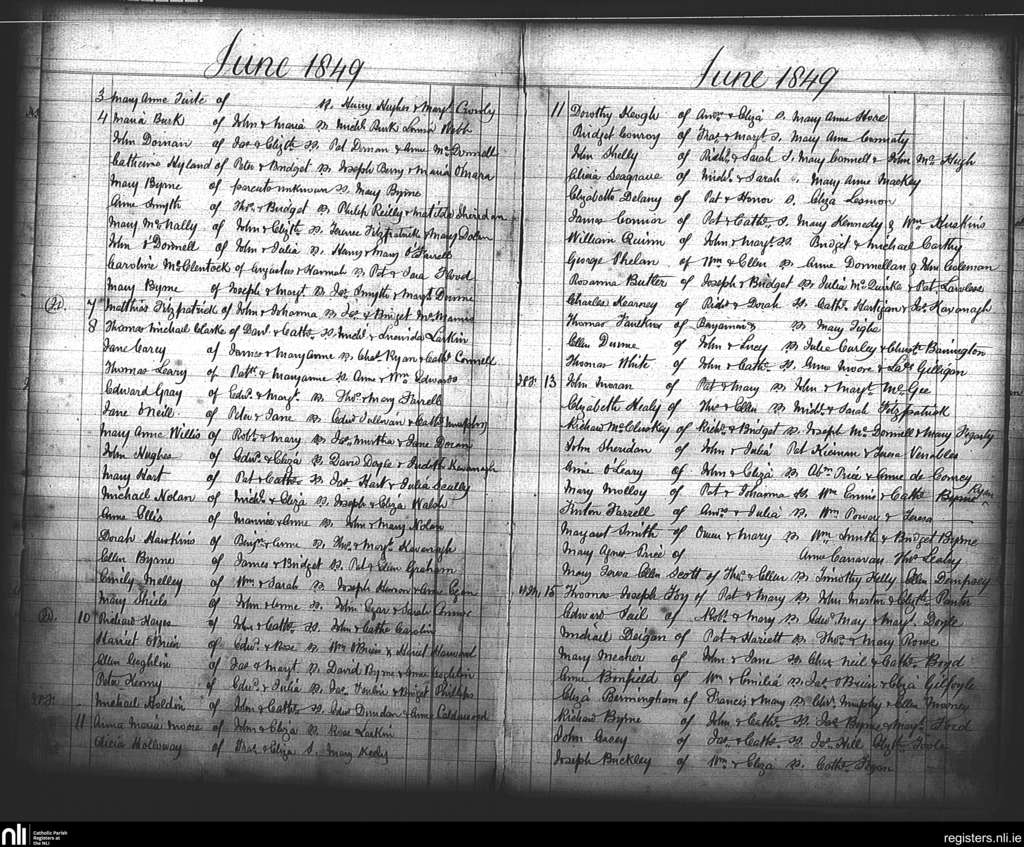 June 1849
3 Mary Anne of S. Henry Hughes & Margt. Crowly
4 Maria Burk of John & Maria S. Michl. Burk Louisa Webb
John Dornan of Jas & Elizth S. Pat Dornan & Anne McConnell
Catherine Hyland of Peter & Bridget S. Joseph Berry & Maria Omara
Mary Byrne of parents unknown S. Mary Byrne
Anne Smyth of Thos. & Bridget S. Philip Reilly & Matilda Sheridan
Mary McNally of John & Elizth S. Fitzpatrick & Mary Dolan
John O'Donnell of John & Julia S. Henry & Mary O'Farrell
Caroline McClentock of Augustus & Hannah S. Pat & Sara Flood
Mary Byrne of Joseph & Margt S. Jas. Smyth & Margt Dunne
7 Matthias Fitzpatrick of John & Johanna S. Jas. & Bridget McManus
8 Thomas Michael Clarke of Danl. & Cathe. S. Michl. & Larkin
Jane Carey of James & Mary Anne S. Chas Ryan & Cathe. Connell
Thomas Leary of Patk & Maryanne S. Anne & Wm. Edwards
Edward Gray of Edwd. & Margt. S. Thos. & Mary Farrell
Jane O'Neill of Peter & Jane S. Edwd Sullivan & Cathe Murphy
Mary Anne Willis of Robt. & Mary S. Jas. Murtha & Jane Doran
John Hughes of Edwd. & Eliza S. David Doyle & Judith Kavanagh
Mary Hart of Pat & Cathe S. Jas Hart & Julia Scully
Michael Nolan of Michl. & Eliza S. Joseph & Eliza Walsh
Anne Ellis of & Anne S. John & Mary Nolan
Dorah Hawkins of Benjn. & Anne S. Thos. & Margt. Kavanagh
Ellen Byrne of James & Bridget S. Pat & Ellen Graham
Emily Melley of Wm & Sarah S. Joseph & Anne Egan
Mary Shiels of John & Anne S. John Egar & Sarah Connor
10 Richard Hayes of John & Cathe. S. John & Cathe Carolin
Harriet O'Brien of Edwd. & Rose S. Wm OBrien & Harriet Howard
Ellen Coghlin of Jas & Margt S. David Byrne & Coghlin
Peter Kenny of Edwd. & Julia S. Jas. & Bridget Phillips
Michael Holdin of John & Cathe S. Edwd Dundan & Anne
11 Anna Maria Moore of John & Eliza S. Rose Larkin
Alicia Holloway of & Eliza S. Mary Kedy
June 1849
11 Dorothy Keogh of Andw. & Eliza S. Mary Anne Hore
Bridget Conroy of & Margt S. Mary Anne
John Shelly of Richd. & Sarah S. Mary Connell & John McHugh
Alicia Seagrave of Michl. & Sarah S. Mary Anne Mackey
Elizabeth Delany of Pat & Honor S. Eliza Lennon
James Connor of Pat & Cathe. S. Mary Kennedy & Wm. Huskins
William Quinn of John & Margt S. Bridget & Michael Carthy
George Phelan of Wm & Ellen S. Anne Donnellan & John Coleman
Rosanna Butler of Joseph & Bridget S. Julia McQuirke & Pat Lawless
Charles Kearney of Richd & Dorah S. Cathe. Hartigan & Jas. Kavanagh
Thomas Faulkner of Benjamin & S. Mary Tighe
Ellen Dunne of John & Lucy S. Julia Curley & Christr. Banington
Thomas White of John & Cathe. S. Anne Moore & Gilligan
13 John Moran of Pat & Mary S. John & Margt. McGee
Elizabeth Healy of Thos & Ellen S. Michl. & Sarah Fitzpatrick
Richard McCluskey of Richd. & Bridget S. Joseph McDonnell & Mary Fogarty
John Sheridan of John & Julia Pat Kiernan & Teresa Venables
Anne O'Leary of John & Eliza S. Price & Anne de Courcy
Mary Molloy of Pat & Johanna S. Wm Ennis & Cathe Byrne Ryan
Finton Farrell of Andw. & Julia S. Wm Power & Teresa
Margaret Smith of Owen & Mary S. Wm Smith & Bridget Byrne
Mary Agnes Price of Anne Carravan Thos Lealey
Mary Teresa Ellen Scott of Thos. & Ellen S. Timothy Kelly Ellen Dempsey
15 Thomas Joseph Foy of Pat & Mary S. John Martin & Elizth Panter
Edward Tail of Robt. & Mary S. Edwd May & Margt. Doyle
Michael Deegan of Pat & Hariett S. Thos. & Mary Rowe
Mary Meaher of John & Jane S. Chas Neil & Cathe. Boyd
Anne Bonfield of Wm & Emilia S. Jas OBrien & Eliza Gilfoyle
Eliza Bermingham of Francis & Mary S. Chrisr. Murphy & Ellen Mooney
Richard Byrne of John & Cathe. S. Jas Byrne & Margt. Ford
John Casey of Jas. & Cathe. S. Jas. Hill Elizth. Toole
Joseph Buckley of Wm & Eliza S. Cathe. Fegan
nli Catholic Parish
Registers at
the NLI
registers.nli.ie